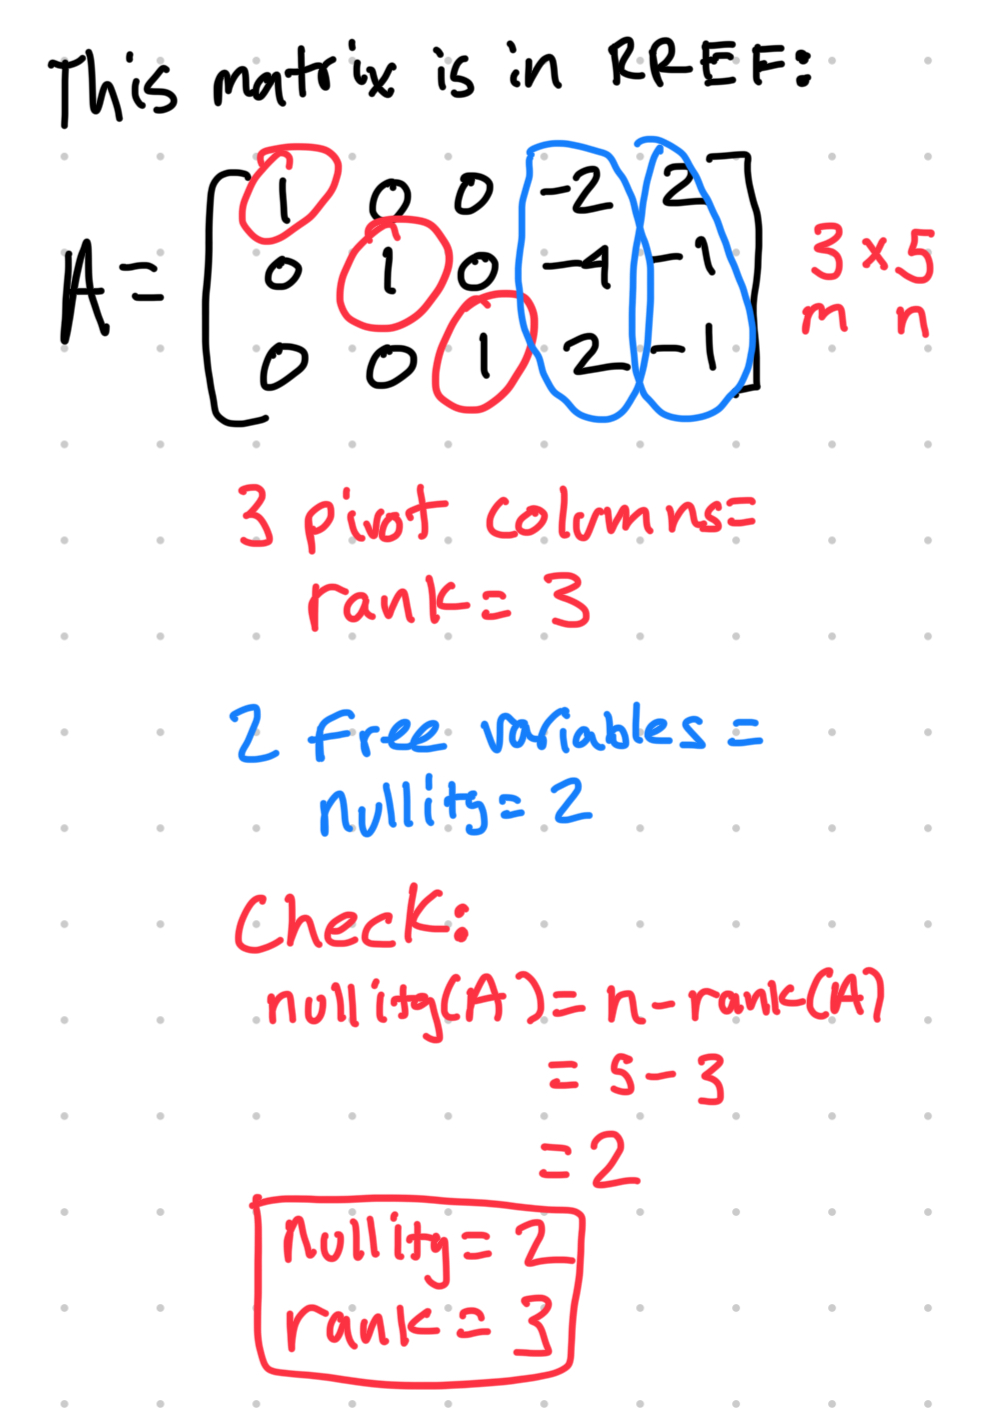 This matrix is in RREF:
1 0 0 -2 2
A = 0 1 0 -4 -1 3 × 5
m n
0 0 1 2 -1
3 pivot columns=
rank = 3
2 free variables =
nullity = 2
Check:
nullity(A) = n - rank(A)
= 5 - 3
= 2
nullity = 2
rank = 3